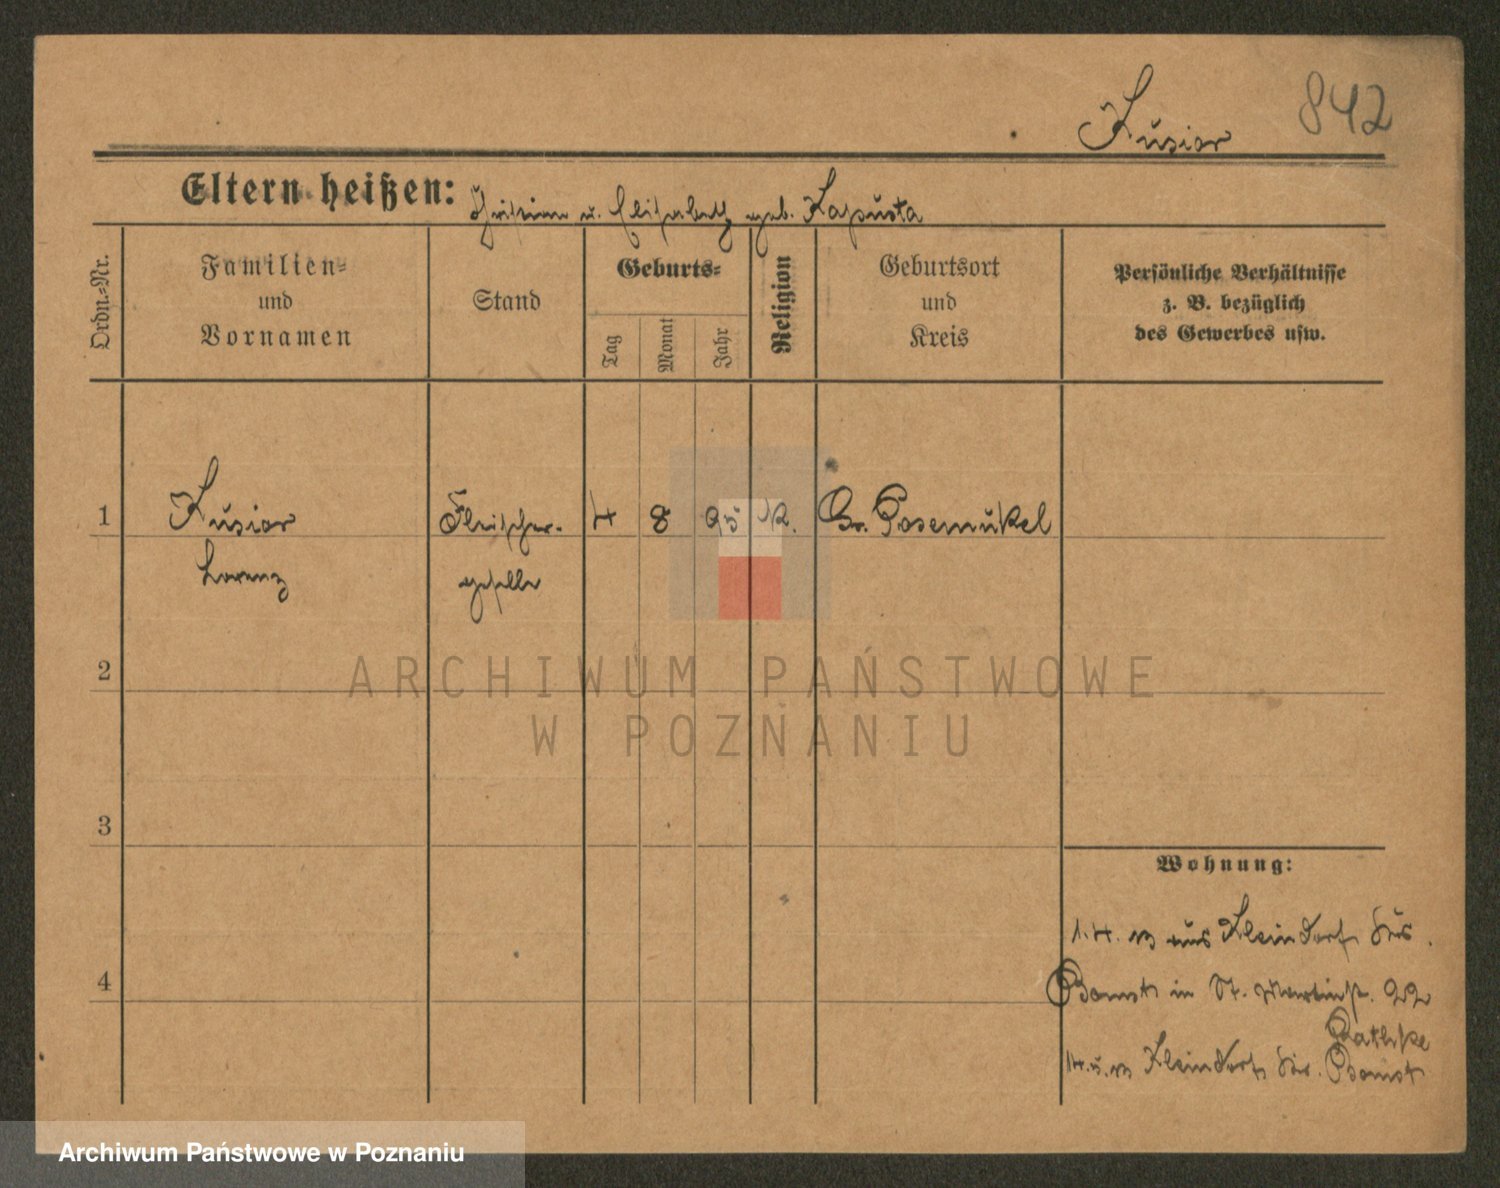 842
Kusior
Eltern heißen: u. Elisabeth geb. Kapusta
Ordn.-Nr.
Familien-
und
Vornamen
Stand
Geburts-
Tag
Monat
Jahr
Religion
Geburtsort
und
Kreis
Persönliche Verhältnisse
z. B. bezüglich
des Gewerbes usw.
1
Kusior
Lorenz
Fleischer-
geselle
4
8
95
K.
Gr. Posemukel
ARCHIWUM PAŃSTWOWE
W POZNANIU
2
3
4
Wohnung:
1.4. aus Kleindorf Krs.
Bomst in St. Martinstr. 22
Rathke
Kleindorf Kr. Bomst
Archiwum Państwowe w Poznaniu